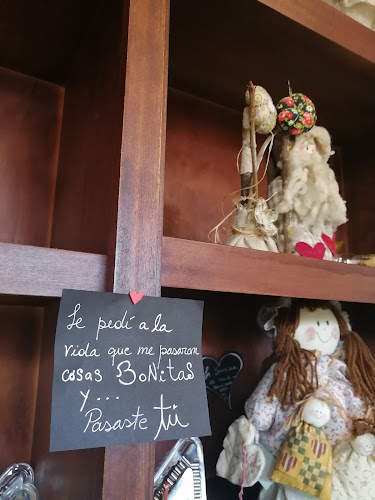 Le pedí a la
vida que me pasaran
cosas BoNitas
y...
Pasaste tú